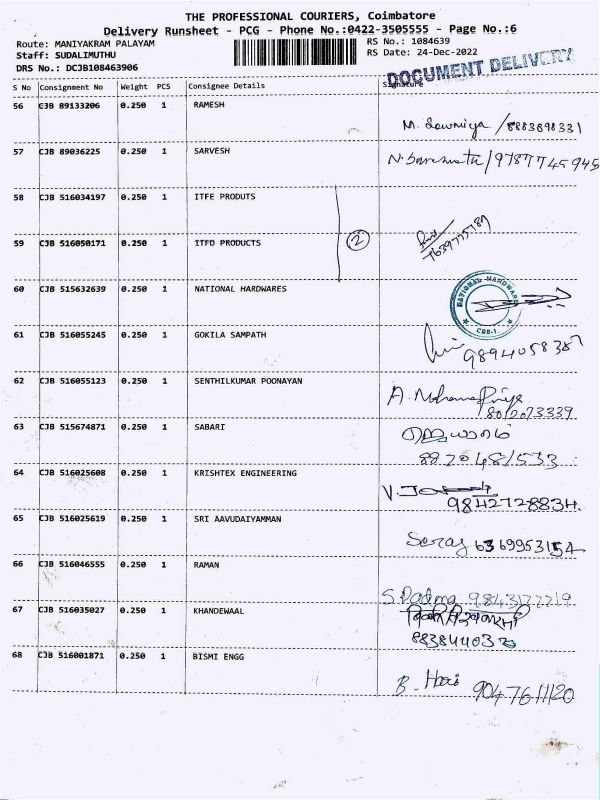 THE PROFESSIONAL COURIERS, Coimbatore
Delivery Runsheet - PCG - Phone No.:0422-3505555 - Page No.:6
Route: MANIYAKRAM PALAYAM
RS No.: 1084639
Staff: SUDALIMUTHU
RS Date: 24-Dec-2022
DRS No.: DCJB108463906
DOCUMENT DELIVERY
S No Consignment No Weight PCS Consignee Details Signature
56 CJB 89133206 0.250 1 RAMESH
M. Sowmiya / 8883698331
57 CJB 89036225 0.250 1 SARVESH
9787745945
58 CJB 516034197 0.250 1 ITFE PRODUTS
59 CJB 516050171 0.250 1 ITFD PRODUCTS 2
7639775789
60 CJB 515632639 0.250 1 NATIONAL HARDWARES
NATIONAL HARDWARES
CBE-1.
61 CJB 516055245 0.250 1 GOKILA SAMPATH
9894058387
62 CJB 516055123 0.250 1 SENTHILKUMAR POONAYAN
A. Mohanapriya
8012073339
63 CJB 515674871 0.250 1 SABARI
8820481533
64 CJB 516025608 0.250 1 KRISHTEX ENGINEERING
9842728834
65 CJB 516025619 0.250 1 SRI AAVUDAIYAMMAN
Saraj 6369953154
66 CJB 516046555 0.250 1 RAMAN
S. Padma 9843177719
67 CJB 516035027 0.250 1 KHANDEWAAL
68 CJB 516001871 0.250 1 BISMI ENGG
B. Hari 9047611120